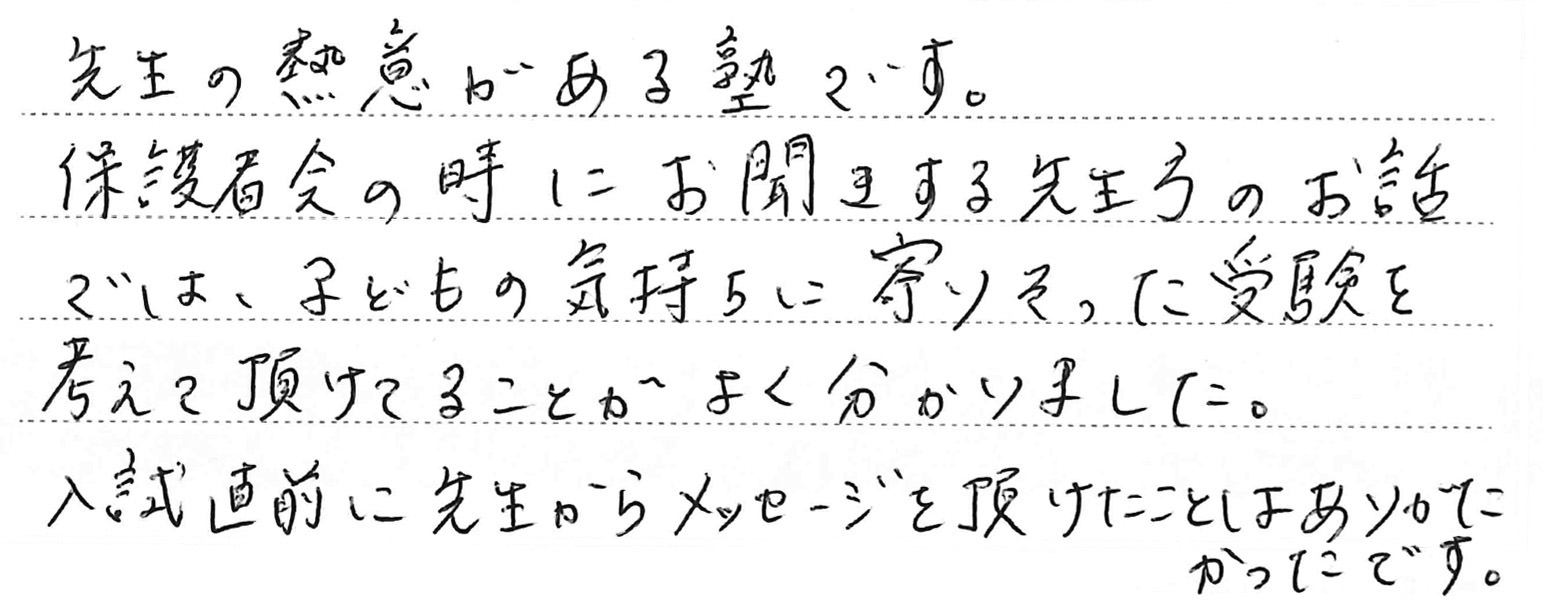 先生の熱意がある塾です。
保護者会の時にお聞きする先生方のお話
では、子どもの気持ちに寄りそった受験を
考えて頂けてることがよく分かりました。
入試直前に先生からメッセージを頂けたことはありがた
かったです。